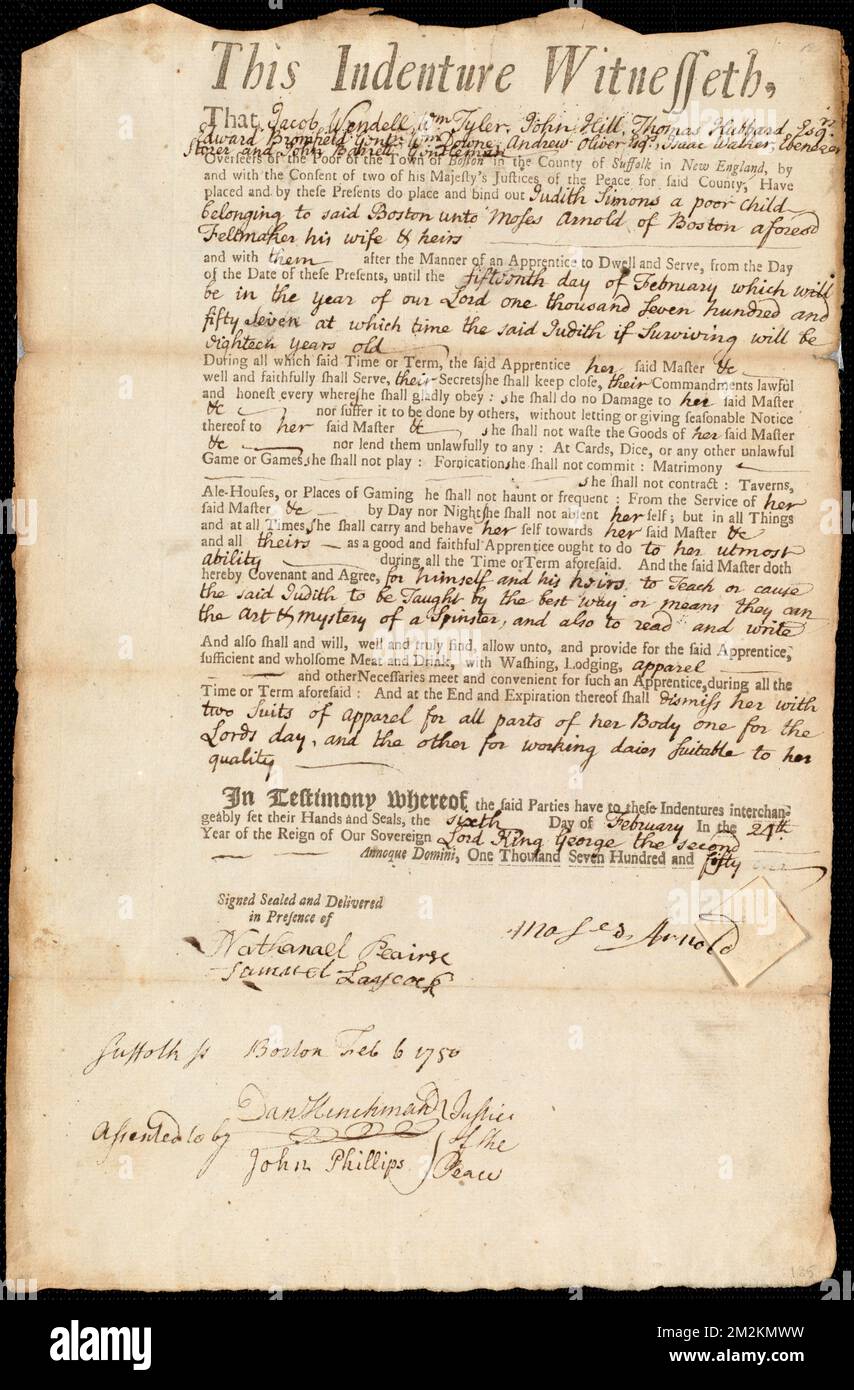 This Indenture Witnesseth,
That Jacob Wendell Wm Tyler, John Hill, Thomas Hubbard Esqrs
Edward Bromfield Gentn Wm Downe, Andrew Oliver Esq. Isaac Walker, Ebenezer
Storer and John Barrett Gentlemen
Overseers of the Poor of the Town of Boston in the County of Suffolk in New England, by
and with the Consent of two of his Majesty's Justices of the Peace for said County, Have
placed and by these Presents do place and bind out Judith Simons a poor Child
belonging to said Boston unto Moses Arnold of Boston aforesd
Feltmaker his wife & heirs
and with them after the Manner of an Apprentice to Dwell and Serve, from the Day
of the Date of these Presents, until the fifteenth day of February which will
be in the year of our Lord one thousand Seven hundred and
fifty Seven at which time the said Judith if Surviving will be
Eighteen years old
During all which said Time or Term, the said Apprentice her said Master &c
well and faithfully shall Serve, their Secrets she shall keep close, their Commandments lawful
and honest every where she shall gladly obey : she shall do no Damage to her said Master
&c nor suffer it to be done by others, without letting or giving seasonable Notice
thereof to her said Master &c she shall not waste the Goods of her said Master
&c nor lend them unlawfully to any : At Cards, Dice, or any other unlawful
Game or Games she shall not play : Fornication she shall not commit : Matrimony
she shall not contract : Taverns,
Ale-Houses, or Places of Gaming he shall not haunt or frequent : From the Service of her
said Master &c by Day nor Night she shall not absent her self ; but in all Things
and at all Times she shall carry and behave her self towards her said Master &c
and all theirs as a good and faithful Apprentice ought to do to her utmost
ability during all the Time or Term aforesaid. And the said Master doth
hereby Covenant and Agree, for himself and his heirs to Teach or cause
the said Judith to be Taught by the best way or means they can
the Art & mystery of a Spinster, and also to read and write
And also shall and will, well and truly find, allow unto, and provide for the said Apprentice,
sufficient and wholsome Meat and Drink, with Washing, Lodging, apparel
and other Necessaries meet and convenient for such an Apprentice, during all the
Time or Term aforesaid : And at the End and Expiration thereof shall dismiss her with
two Suits of apparel for all parts of her Body one for the
Lords day, and the other for working daies Suitable to her
quality
In Testimony whereof, the said Parties have to these Indentures interchan-
geably set their Hands and Seals, the sixth Day of February In the 24th
Year of the Reign of Our Sovereign Lord King George the second
Annoque Domini, One Thousand Seven Hundred and fifty
Signed Sealed and Delivered
in Presence of
Moses Arnold
Nathanael Peairse
Samuel Laycock
Suffolk ss Boston Feb 6 1750
Assented to by
Dan Henchman
John Phillips
Justice
of the
Peace
185
alamy
Image ID: 2M2KMWW
www.alamy.com